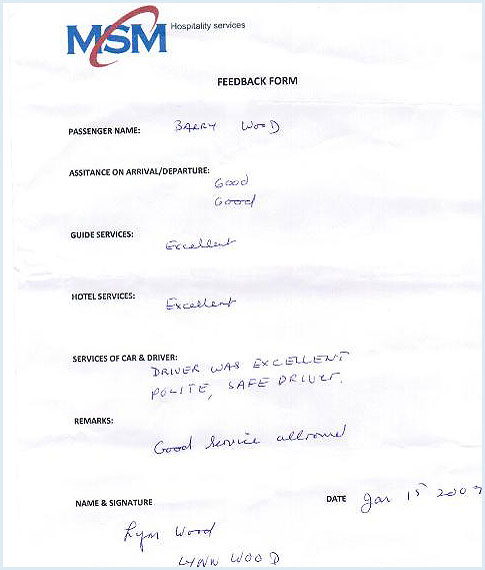 MSM Hospitality services
FEEDBACK FORM
PASSENGER NAME: BARRY WOOD
ASSITANCE ON ARRIVAL/DEPARTURE:
Good
Good
GUIDE SERVICES:
Excellent
HOTEL SERVICES:
Excellent
SERVICES OF CAR & DRIVER:
DRIVER WAS EXCELLENT
POLITE, SAFE DRIVER.
REMARKS:
Good Service allround
NAME & SIGNATURE DATE Jan 15 2009
Lynn Wood
LYNN WOOD